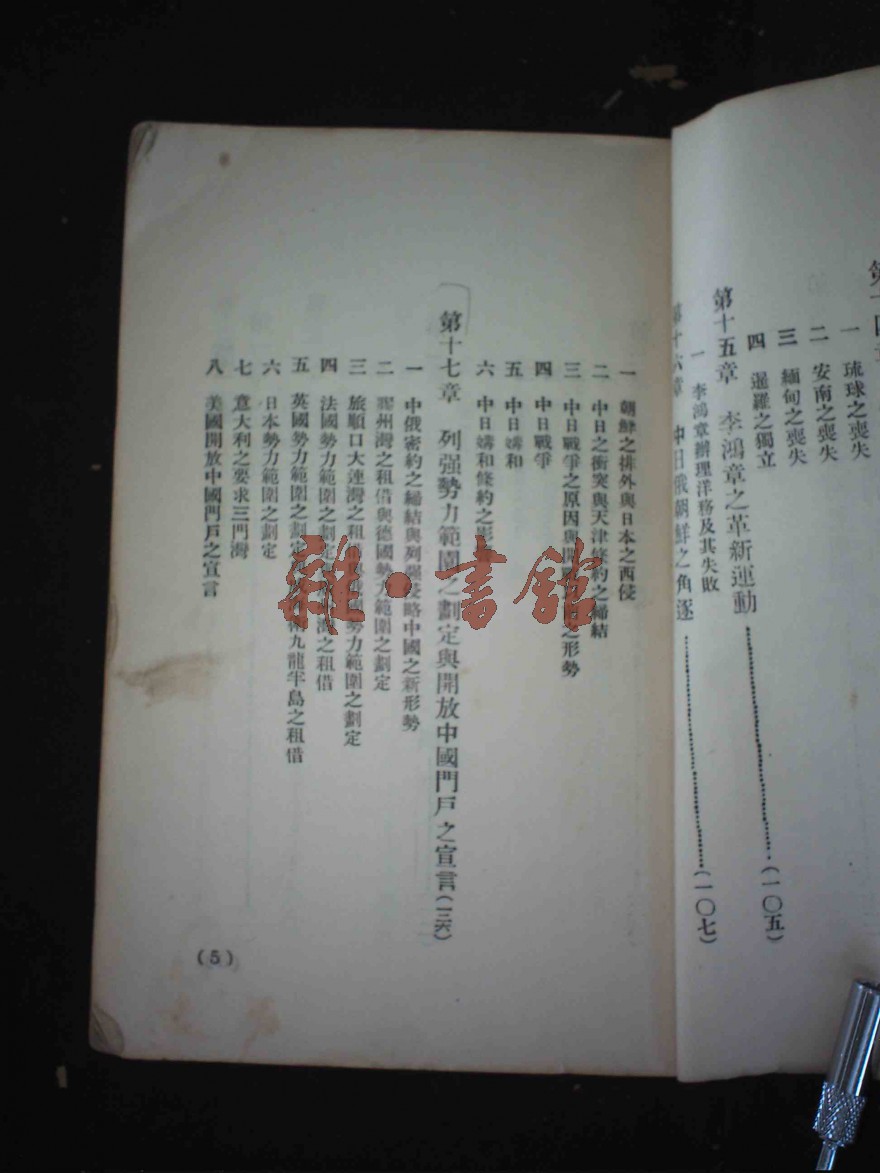 一 琉球之喪失
二 安南之喪失
三 緬甸之喪失
四 暹羅之獨立
第十五章 李鴻章之革新運動(一〇五)
一 李鴻章辦理洋務及其失敗
第十六章 中日俄朝鮮之角逐(一〇七)
一 朝鮮之排外與日本之西侵
二 中日之衝突與天津條約之締結
三 中日戰爭之原因與開戰之形勢
四 中日戰爭
五 中日媾和
六 中日媾和條約之影響
第十七章 列强勢力範圍之劃定與開放中國門戶之宣言
一 中俄密約之締結與列强侵略中國之新形勢
二 膠州灣之租借與德國勢力範圍之劃定
三 旅順口大連灣之租借與勢力範圍之劃定
四 法國勢力範圍之劃定灣之租借
五 英國勢力範圍之劃定九龍半島之租借
六 日本勢力範圍之劃定
七 意大利之要求三門灣
八 美國開放中國門戶之宣言
(5)
雜·書館